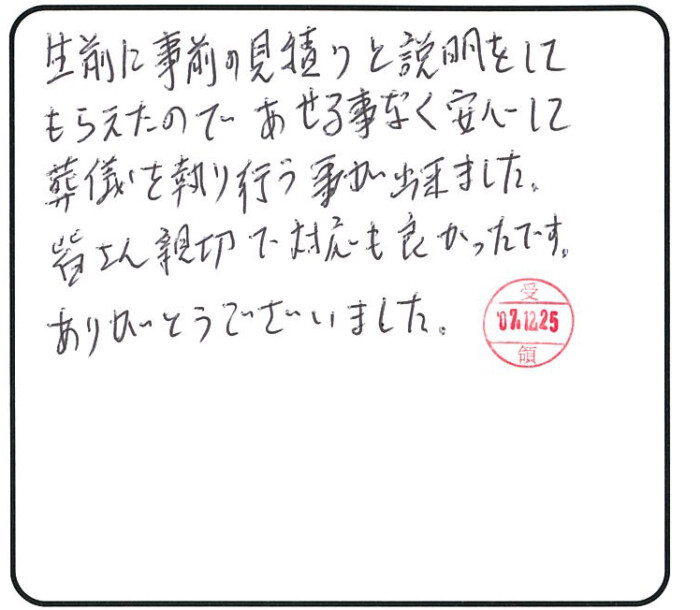 生前に事前の見積りと説明をして
もらえたので あせる事なく安心して
葬儀を執り行う事が出来ました。
皆さん親切で対応も良かったです。
ありがとうございました。
受
'07.12.25
領